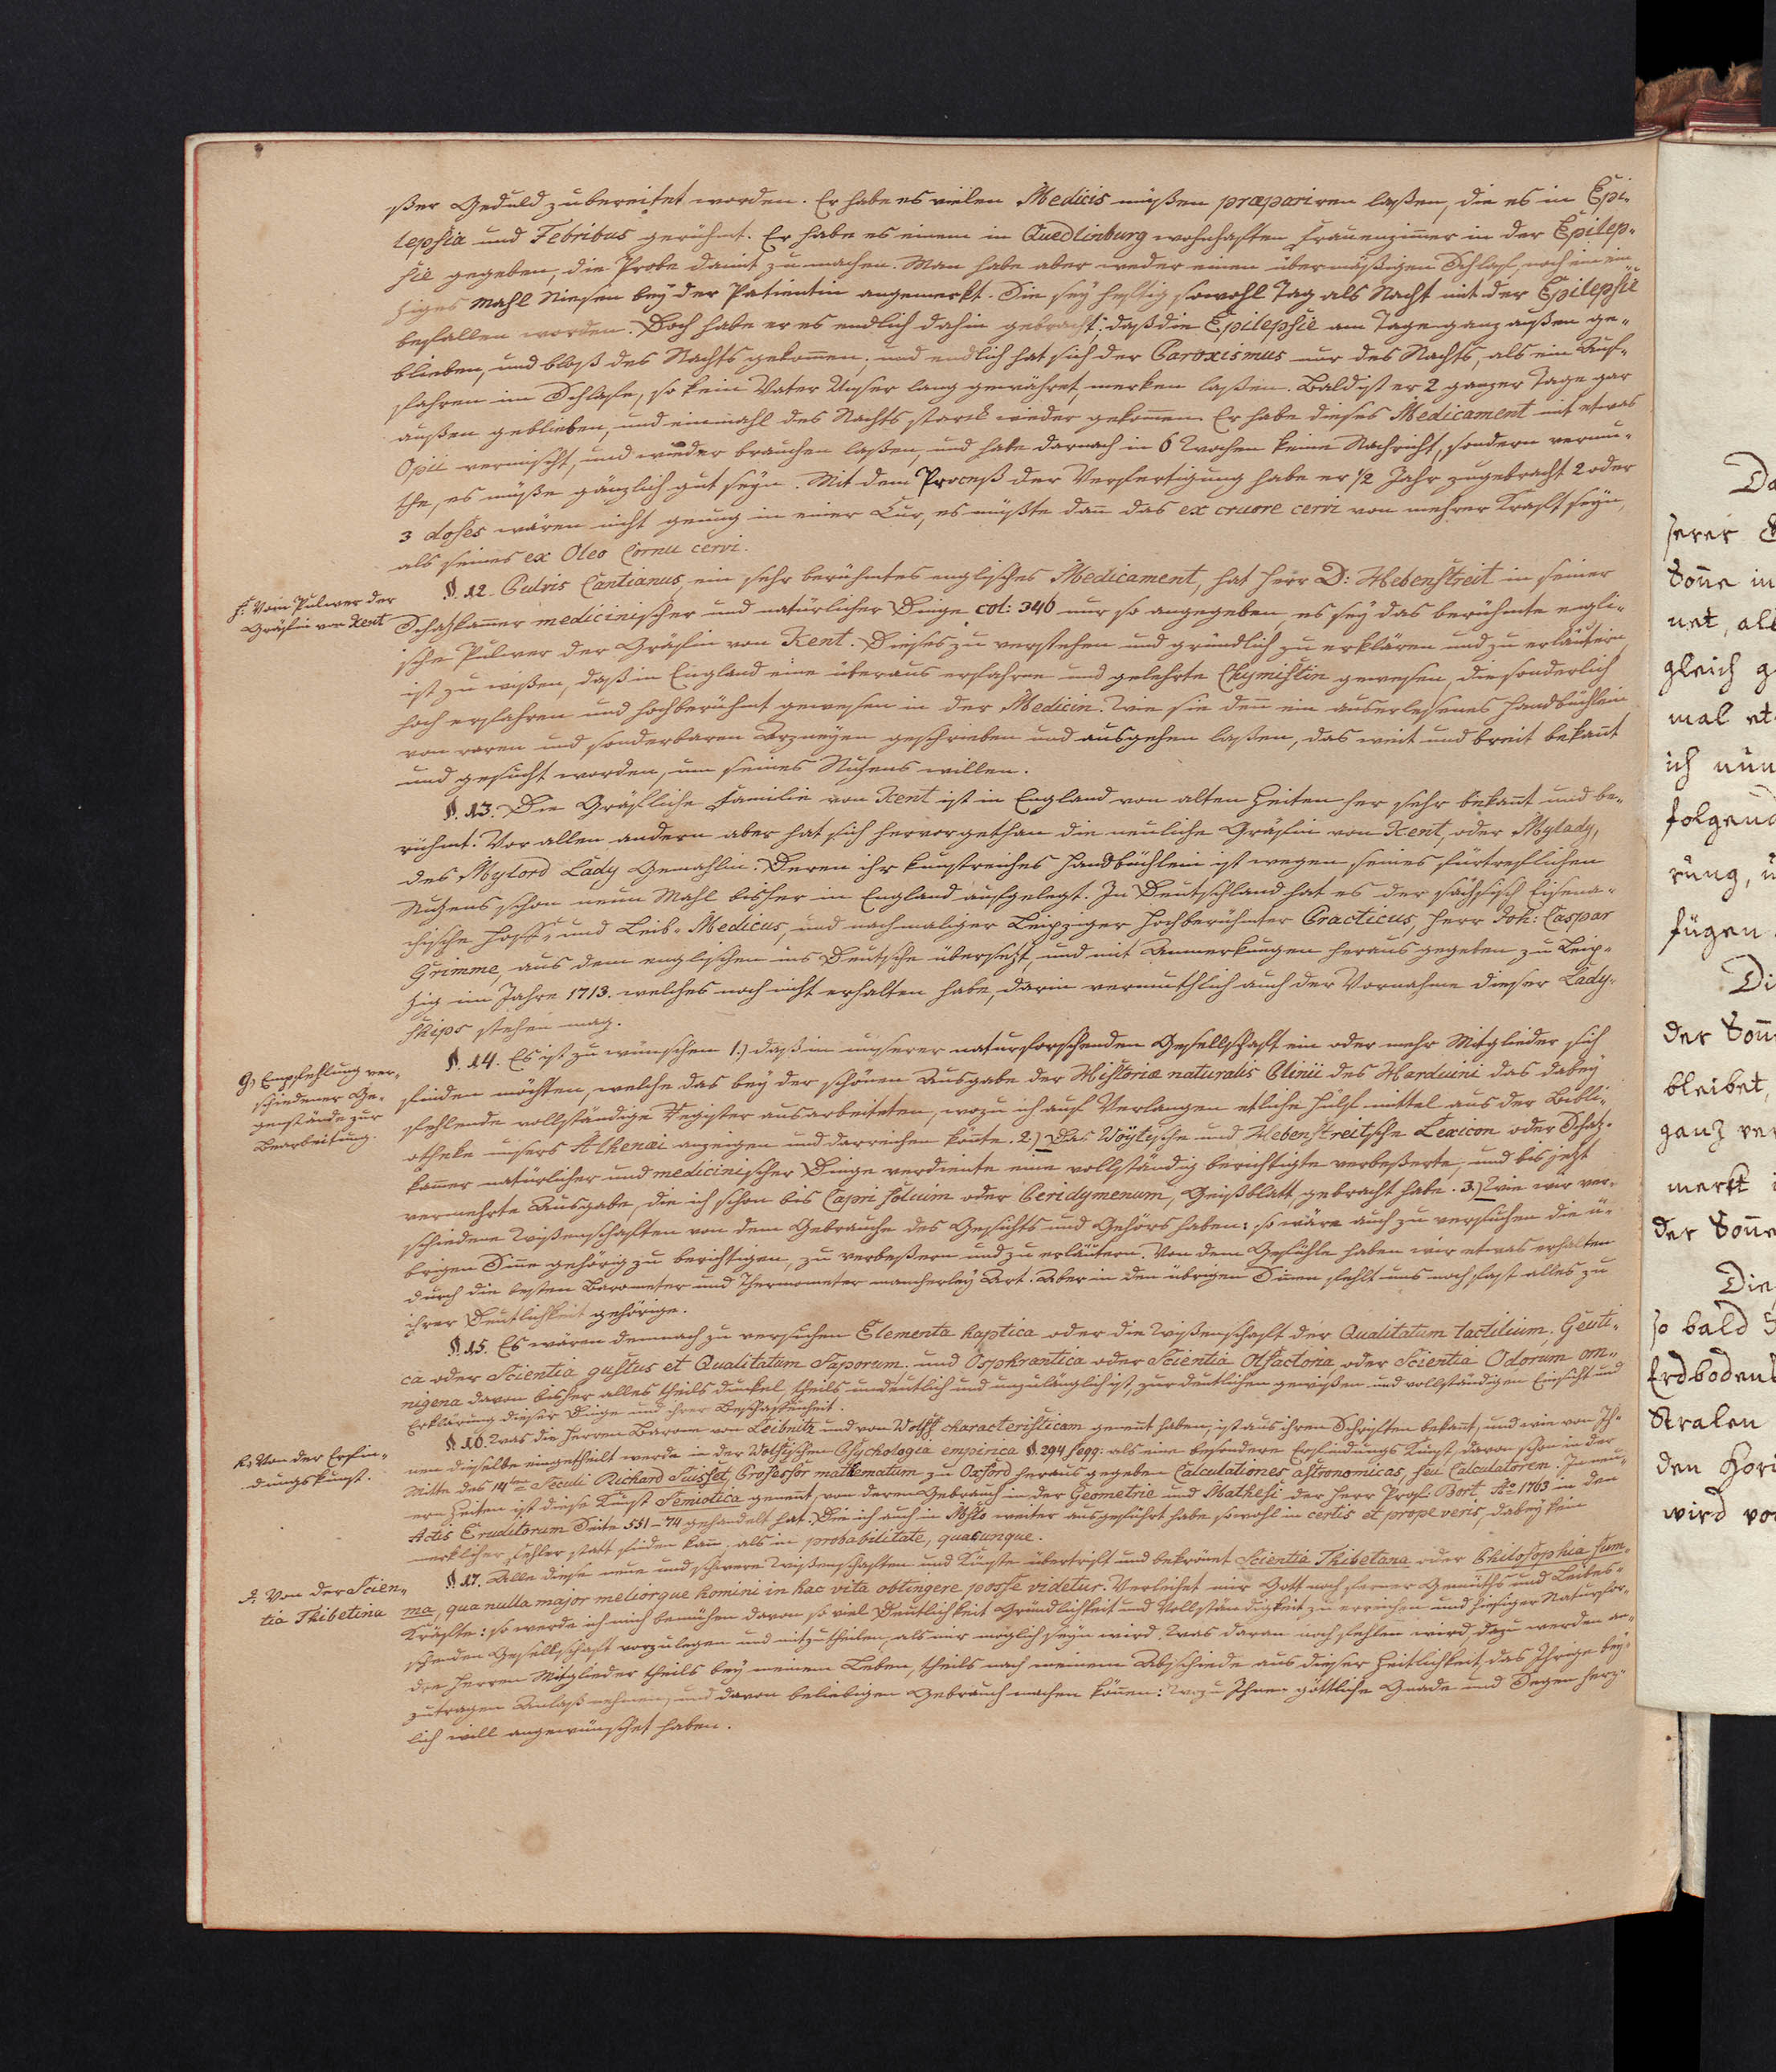 ßer Geduld zubereitet worden. Er habe es vielen Medicis müßen præpariren laßen, die es in Epi-
lepsia und Febribus gerühmt. Er habe es einem in Quedlinburg wohnhaften Frauenzimer in der Epilep-
sie gegeben, die Probe damit zu machen. Man habe aber weder einen übermäßigen Schlaf, noch ein ein-
ziges mahl Niesen bey der Patientin angemerkt. Sie sey heftig sowohl Tag als Nacht mit der Epilepsie
befallen worden. Doch habe er es endlich dahin gebracht: daß die Epilepsie am Tage ganz außen ge-
blieben, und bloß des Nachts gekomen; und endlich hat sich der Paroxismus nur des Nachts, als ein Auf-
fahren im Schlafe, so kein Vater Unser lang gewähret, merken laßen. Bald ist er 2 ganzer Tage gar
außen geblieben, und einmahl des Nachts starck wieder gekomen. Er habe dieses Medicament mit etwas
Opii vermischt, und wieder brauchen laßen, und habe darnach in 6 Wochen keine Nachricht, sondern vermu-
the, es müße gänzlich gut seyn. Mit dem Proceß der Verfertigung habe er 1/2 Jahr zugebracht 2 oder
3 doses wären nicht genug in einer Cur, es müßte dan das ex cruore cervi von mehrer Kraft seyn,
als seines ex Oleo Cornu cervi.
f. Vom Pulver der
Gräfin von Kent
§. 12. Pulvis Cantianus, ein sehr berühmtes englisches Medicament, hat Herr D: Hebenstreit in seiner
Schatzkamer medicinischer und natürlicher Dinge col: 346 nur so angegeben, es sey das berühmte engli-
sche Pulver der Gräfin von Kent. Dieses zu verstehen und gründlich zu erklären und zu erläutern,
ist zu wißen, daß in England eine überaus erfahrne und gelehrte Chymistin gewesen, die sonderlich
hoch erfahren und hochberühmt gewesen in der Medicin. Wie sie den ein auserlesenes Handbüchlein
von raren und sonderbaren Arzneyen geschrieben und ausgehen laßen, das weit und breit bekant
und gesucht worden, um seines Nutzens willen.
§. 13. Die Gräfliche Familie von Kent ist in England von alten Zeiten her sehr bekant und be-
rühmt. Vor allen andern aber hat sich hervorgethan die neuliche Gräfin von Kent, oder Mylady,
des Mylord Lady Gemahlin. Deren ihr kunstreiches Handbüchlein ist wegen seines fürtreflichen
Nutzens schon neun Mahl bisher in England aufgelegt. In Deutschland hat es der sächsisch Eisena-
chische Hoff- und Leib-Medicus, und nachmaliger Leipziger hochberühmter Practicus, Herr Joh: Caspar
Grimme, aus dem englischen ins Deutsche übersetzt, und mit Anmerkungen heraus gegeben zu Leip-
zig im Jahre 1713. welches noch nicht erhalten habe, darin vermuthlich auch der Vornahme dieser Lady-
ships stehen mag.
g) Empfehlung ver-
schiedener Ge-
genstände zur
Bearbeitung.
§. 14. Es ist zu wünschen 1.) daß in unserer naturforschenden Gesellschaft ein oder mehr Mitglieder sich
finden möchten, welche das bey der schönen Ausgabe der Historiæ naturalis Plinii des Harduini das dabey
fehlende vollständige Register ausarbeiteten, wozu ich auf Verlangen etliche Hülfmittel aus der Bibli-
otheke unsers Athenæi anzeigen und darreichen könte. 2.) Das Woytische und Hebenstreitsche Lexicon oder Schatz-
kamer natürlicher und medicinischer Dinge verdiente eine vollständig berichtigte verbeßerte, und bis jetzt
vermehrte Ausgabe, die ich schon bis Caprifolium oder Periclymenum, Geißblatt gebracht habe. 3.) Wie wir ver-
schiedene Wißenschaften von dem Gebrauche des Gesichts und Gehörs haben: so wäre auch zu versuchen die ü-
brigen Sine gehörig zu berichtigen, zu verbeßern und zu erläutern. Von dem Gefühle haben wir etwas erhalten
durch die besten Barometer und Thermometer mancherley Art. Aber in den übrigen Sinen fehlt uns noch fast alles zu
ihrer Deutlichkeit gehörige.
§. 15. Es wären demnach zu versuchen Elementa haptica oder die Wißenschaft der Qualitatum tactilium, Geusti-
ca oder Scientia gustus et Qualitatum Saporum. und Osphrantica oder Scientia Olfactoria oder Scientia Odorum om-
nigena davon bisher alles theils dunkel, theils undeutlich und unzulänglich ist, zur deutlichen gewißen und vollständigen Einsicht und
Erklärung dieser Dinge und ihrer Beschaffenheit.
h. Von der Erfin-
dungskunst.
§. 16. Was die Herren Baron von Leibnitz und von Wolff characteristicam genent haben, ist aus ihren Schriften bekant, und wie von Ih-
nen dieselbe eingetheilt werde in der Wolfischen Psychologia empirica §. 294 seqq: als eine besondere Erfindungs Kunst, davon schon in der
Mitte des 14ten Seculi Richard Suisset, Professor mathematum zu Oxford heraus gegeben Calculationes astronomicas, seu Calculatorem. In neu-
ern Zeiten ist diese Kunst Semiotica genent, von deren Gebrauch in der Geometrie und Mathesi der Herr Prof: Bort Ao 1763 in den
Actis Eruditorum Seite 551-74 gehandelt hat. Die ich auch in Msto weiter ausgeführt habe sowohl in certis et prope veris, dabey kein
merklicher Fehler statt finden kan, als in probabilitate, quacunque.
i. Von der Scien-
tia Thibetina
§. 17. Alle diese neue und schwere Wißenschaften und Künste übertrift und bekrönet Scientia Thibetana oder Philosophia sum-
ma, qua nulla major meliorque homini in hac vita obtingere posse videtur. Verleihet mir Gott noch ferner Gemüths und Leibes-
Kräfte: so werde ich mich bemühen davon so viel Deutlichkeit Gründlichkeit und Vollständigkeit zu erreichen und hiesiger Naturfor-
schenden Gesellschaft vorzulegen und mitzutheilen, als mir möglich seyn wird. Was daran noch fehlen wird, dazu werden an-
dre Herren Mitglieder theils bey meinem Leben, theils nach meinem Abschiede aus dieser Zeitlichkeit, das Ihrige bey-
zutragen Anlaß nehmen, und davon beliebigen Gebrauch machen können: Wozu Ihnen göttliche Gnade und Segen herz-
lich will angewünschet haben.
serer
Sone in
net, all
gleich
mal et
ich nun
folgend
rung,
fügen
Di
der Son
bleibet,
ganz ver
merkt
der Sone
Die
so bald
Erdboden
Stralen
den Hori
wird vo